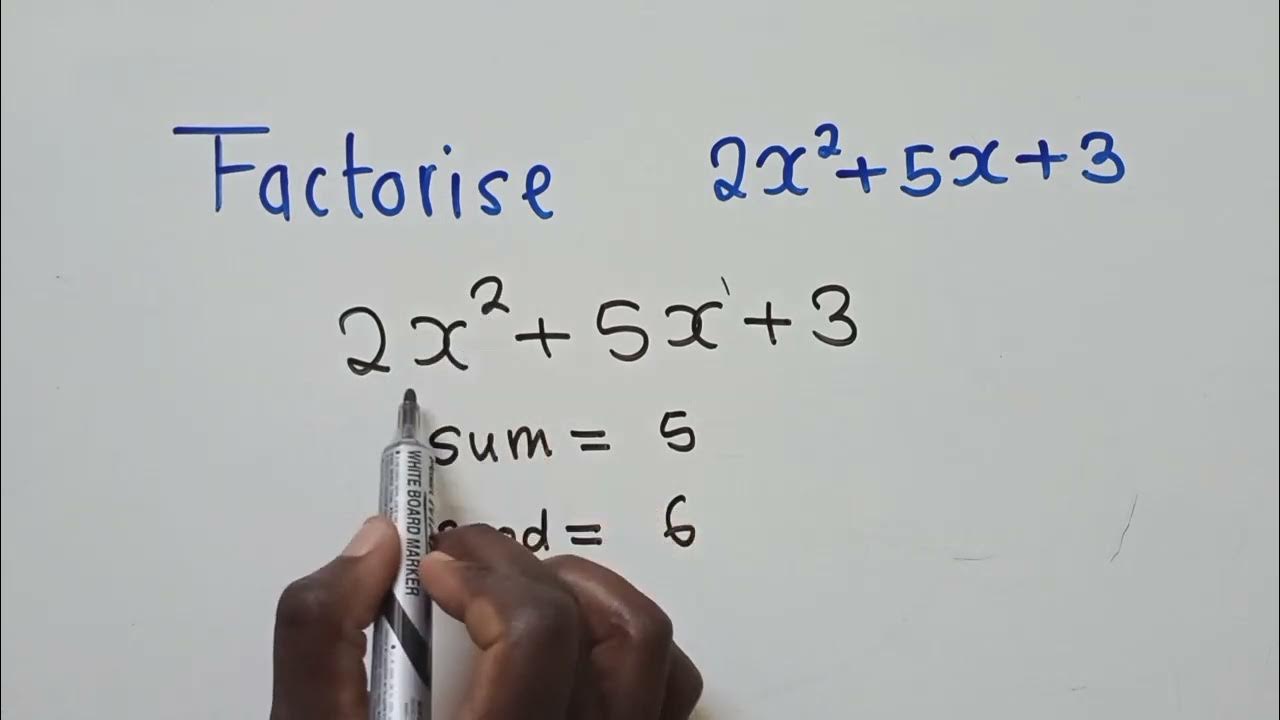 Factorise 2x² + 5x + 3
2x² + 5x + 3
sum = 5
= 6
WHITE BOARD MARKER